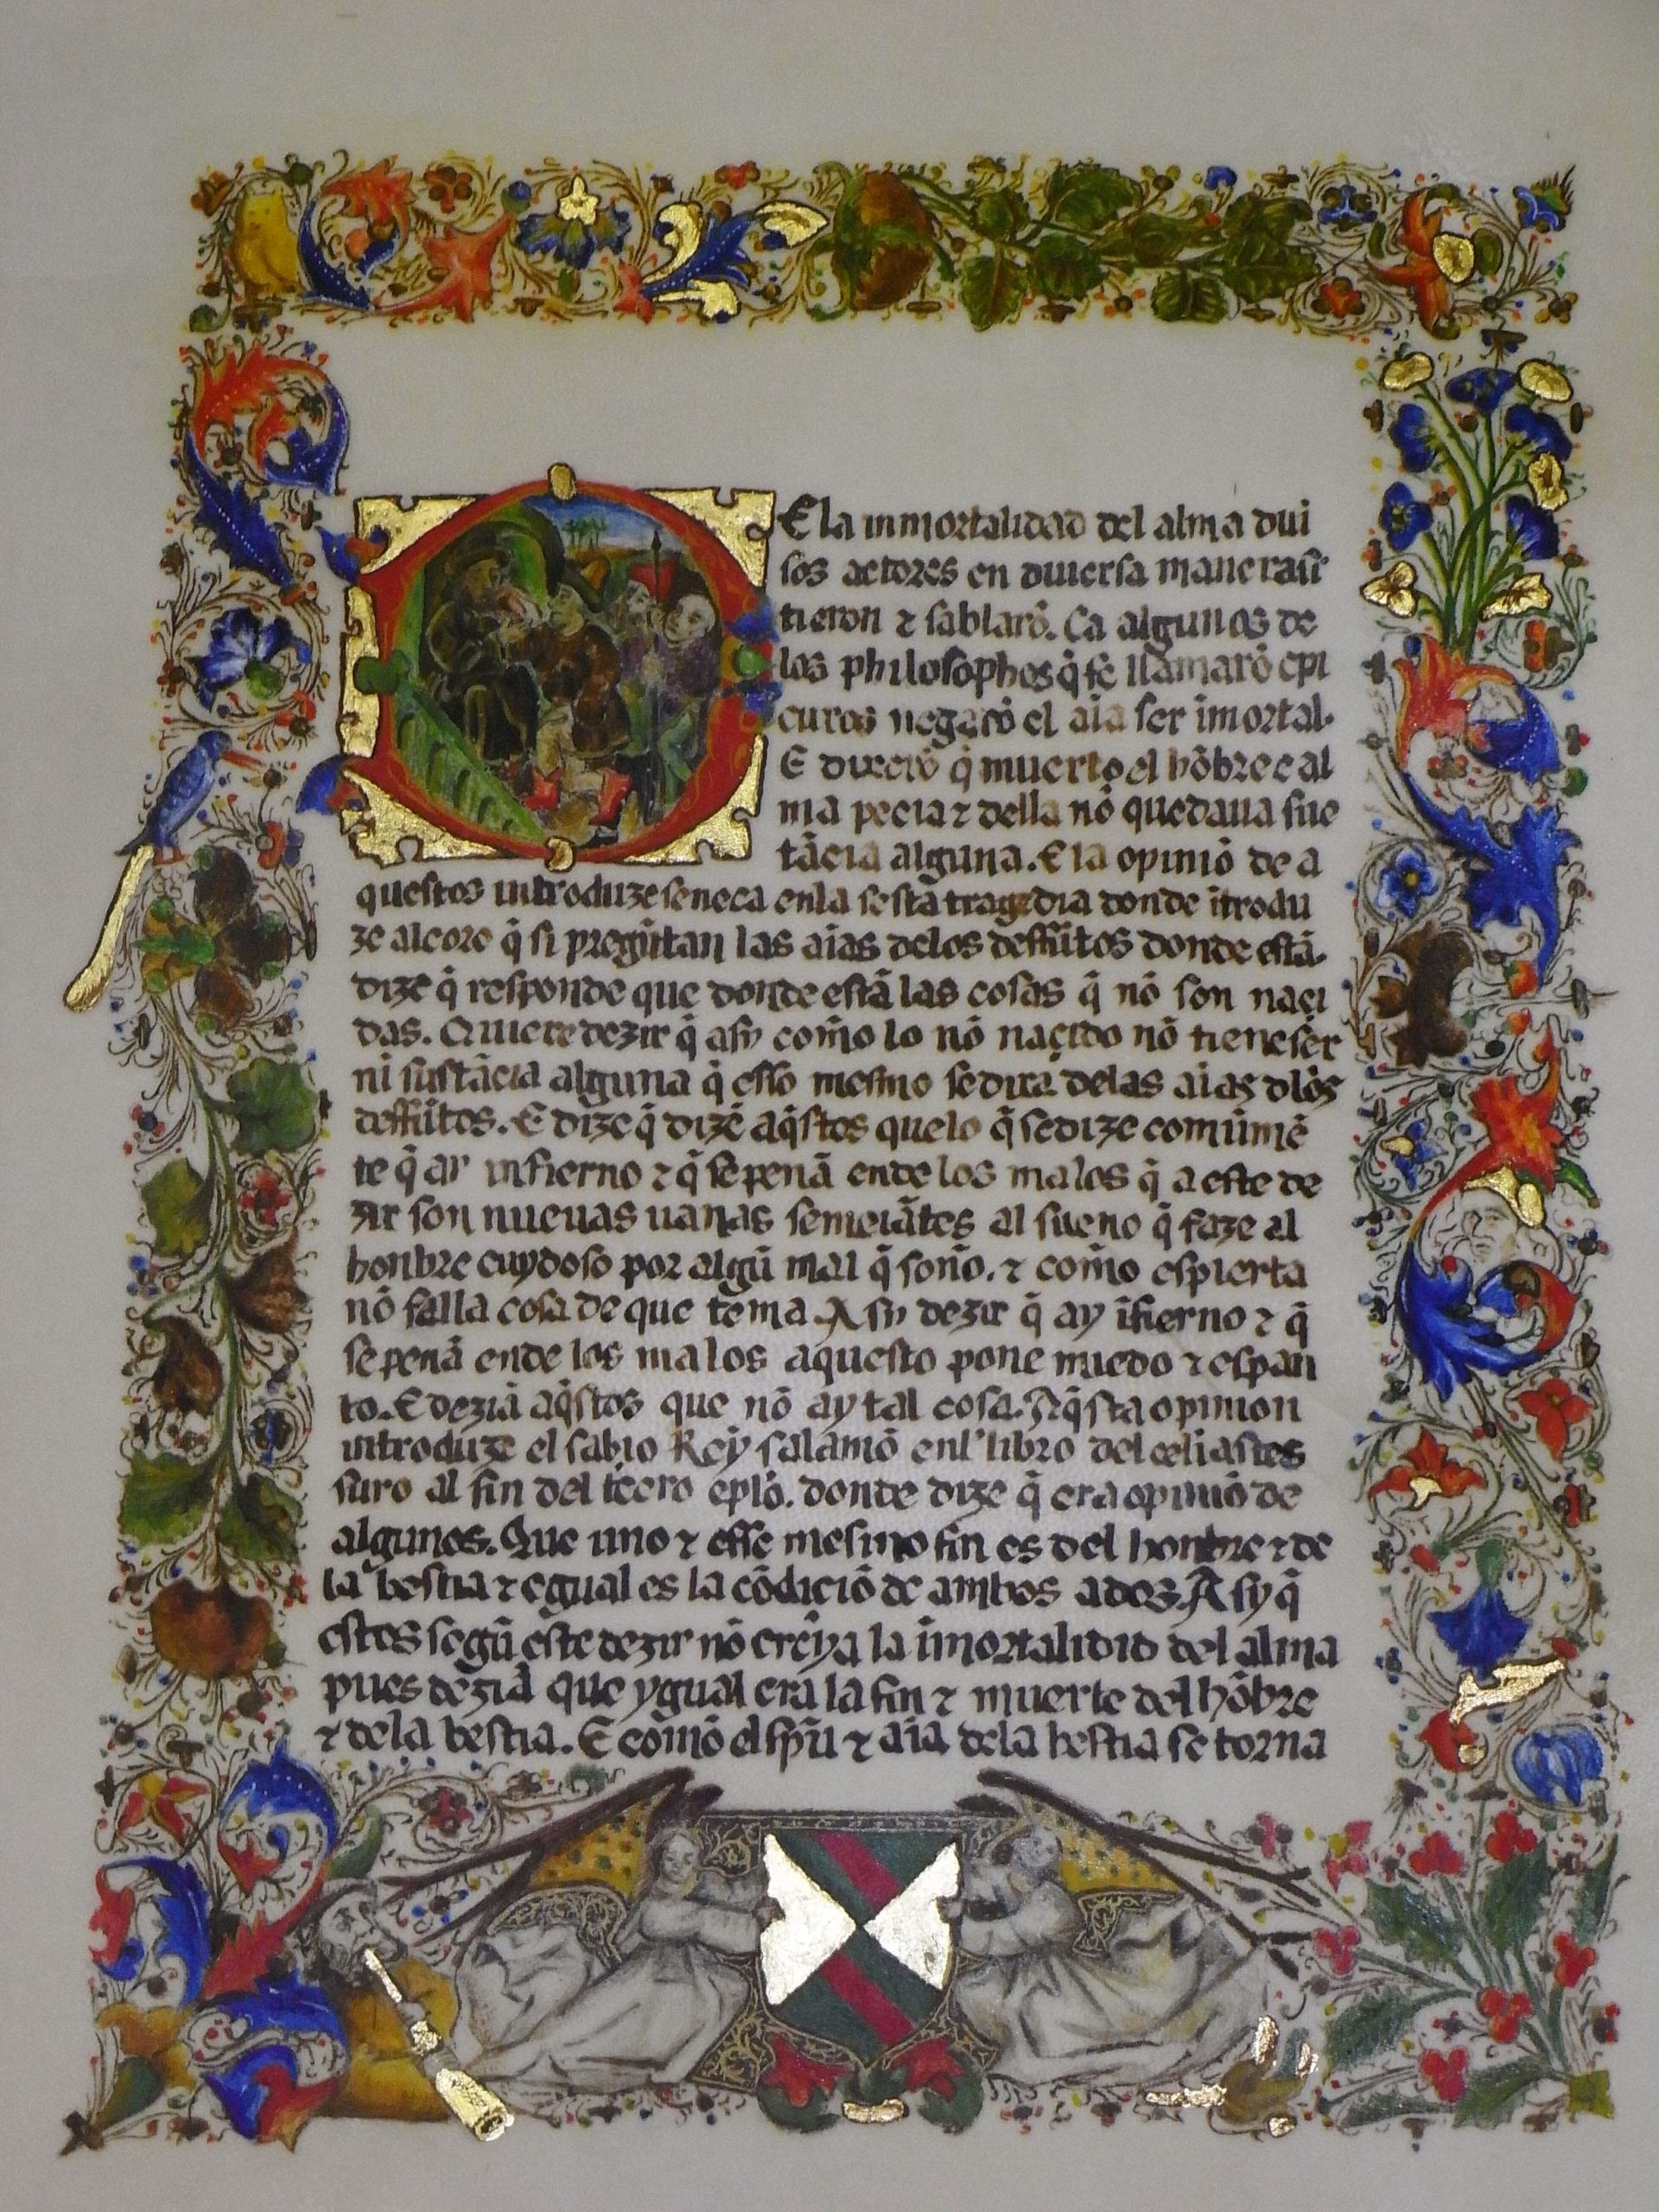 E la inmortalidad del alma dui
sos actores en diuersa manera sī
tieron ⁊ fablarō. Ca algunos de
los philosophos q̄ se llamarō epi
curos negarō el aīa ser imortal.
E dixerō q̄ muerto el hōbre e al
ma pecia ⁊ della nō quedaua sus
tācia alguna. E la opiniō de a
questos introduze seneca enla sesta tragedia donde ītrodu
ze al coro q̄ si pregūtan las aīas delos deffūtos donde estā.
dize q̄ responde que donde estā las cosas q̄ nō son naçi
das. Quiere dezir q̄ asy com̄o lo nō naçido nō tiene ser
ni sustācia alguna q̄ esso mesmo se dira delas aīas dlos
deffūtos. E dize q̄ dizē aq̄stos que lo q̄ se dize comūmē
te q̄ ay infierno ⁊ q̄ se penā ende los malos q̄ a este de
zir son nueuas uanas semeiātes al sueno q̄ faze al
honbre cuydoso por algū mal q̄ soño. ⁊ com̄o espierta
nō falla cosa de que tema. Asy dezir q̄ ay īfierno ⁊ q̄
se penā ende los malos aquesto pone miedo ⁊ espan
to. E deziā aq̄stos que nō ay tal cosa. Aq̄sta opinion
introduze el sabio Rey salamō enl' libro del ecliastes
suro al fin del t̄cero cplō. donde dize q̄ era opiniō de
algunos. Que uno ⁊ esse mesmo fin es del honbre ⁊ de
la bestia ⁊ egual es la cōdiciō de ambos a dos. Asy q̄
estos segū este dezir nō creỹa la īmortalidid del alma
pues deziā que ygual era la fin ⁊ muerte del hōbre
⁊ dela bestia. E cōmō el sp̄u ⁊ aīa dela bestia se torna